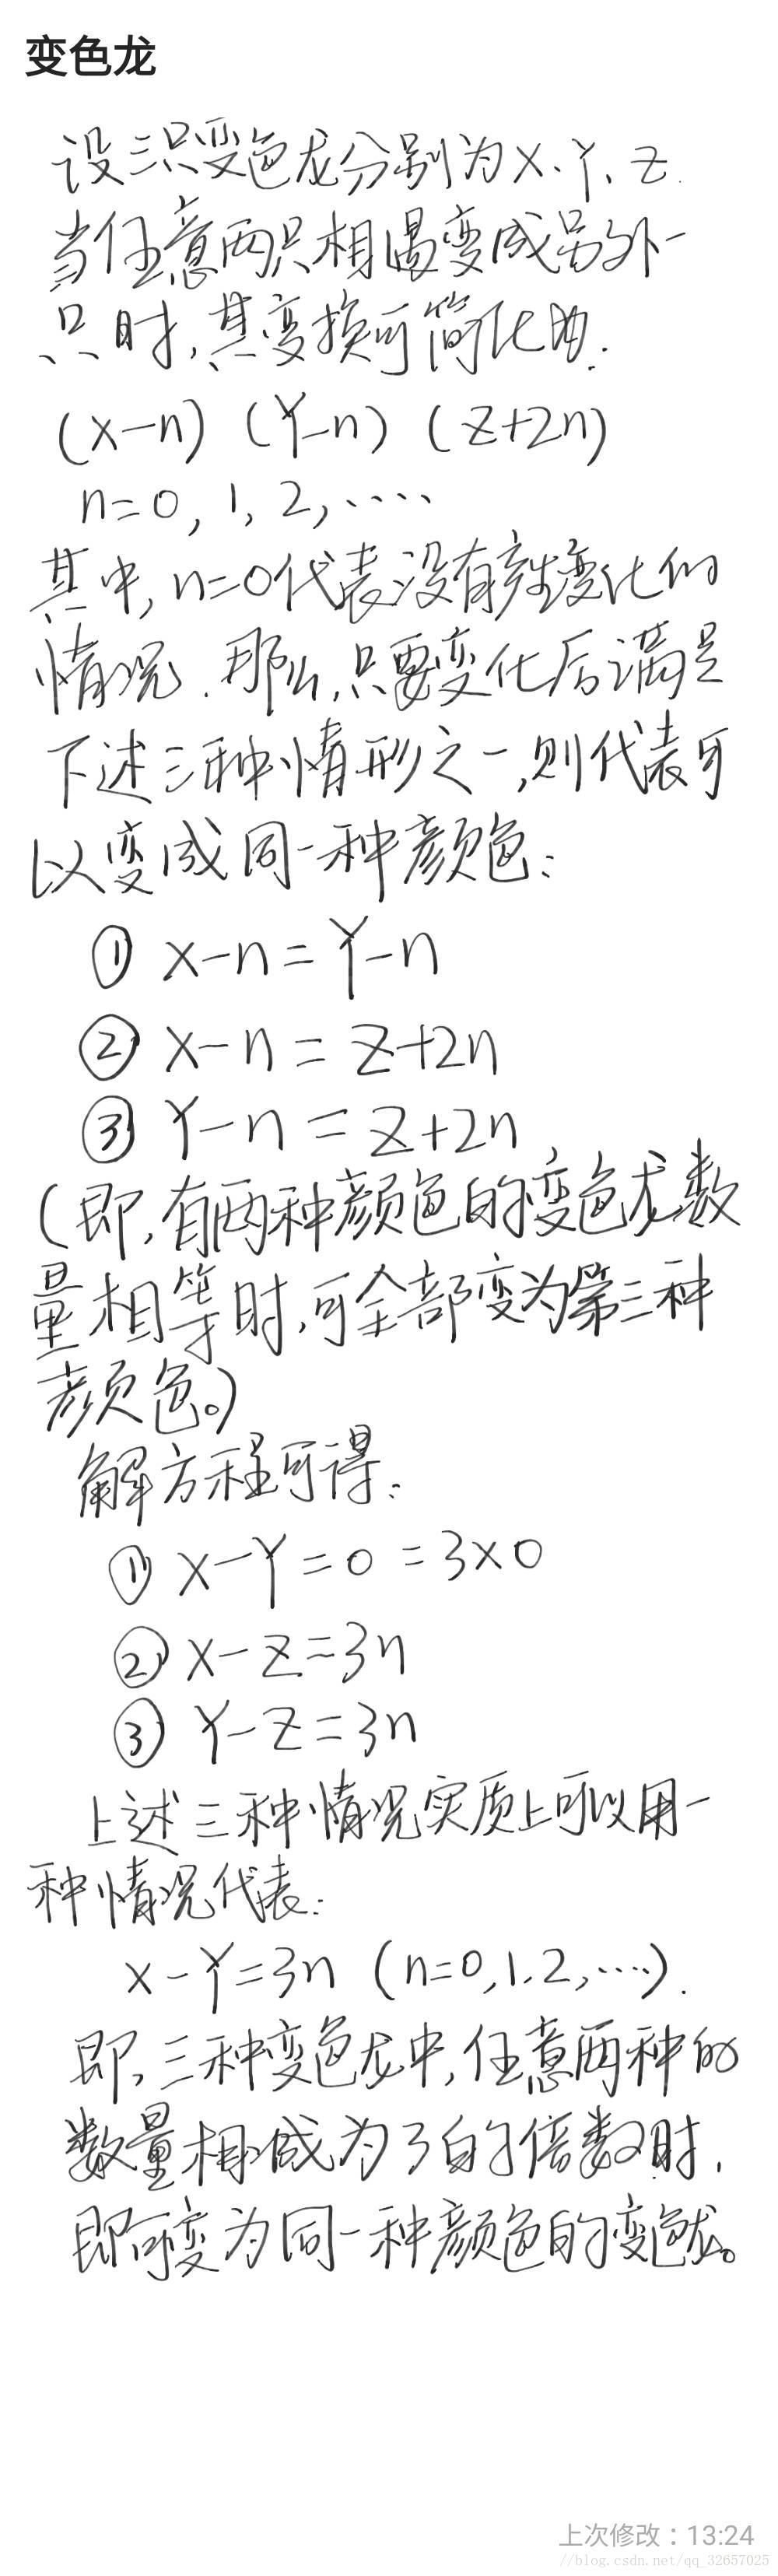 变色龙
设三只变色龙分别为X、Y、Z.
当任意两只相遇变成另外一
只时,其变换可简化为.
(X-n) (Y-n) (Z+2n)
n=0, 1, 2, ....
其中, n=0代表没有产生变化的
情况. 那么,只要变化后满足
下述三种情形之一,则代表可
以变成同一种颜色:
① X-n=Y-n
② X-n=Z+2n
③ Y-n=Z+2n
(即,有两种颜色的变色龙数
量相等时,可全部变为第三种
颜色。)
解方程可得:
① X-Y=0=3×0
② X-Z=3n
③ Y-Z=3n
上述三种情况实质上可以用一
种情况代表:
X-Y=3n (n=0,1,2,...).
即,三种变色龙中,任意两种的
数量相减为3的倍数时,
即可变为同一种颜色的变色龙。
上次修改:13:24
//blog.csdn.net/qq_32657025